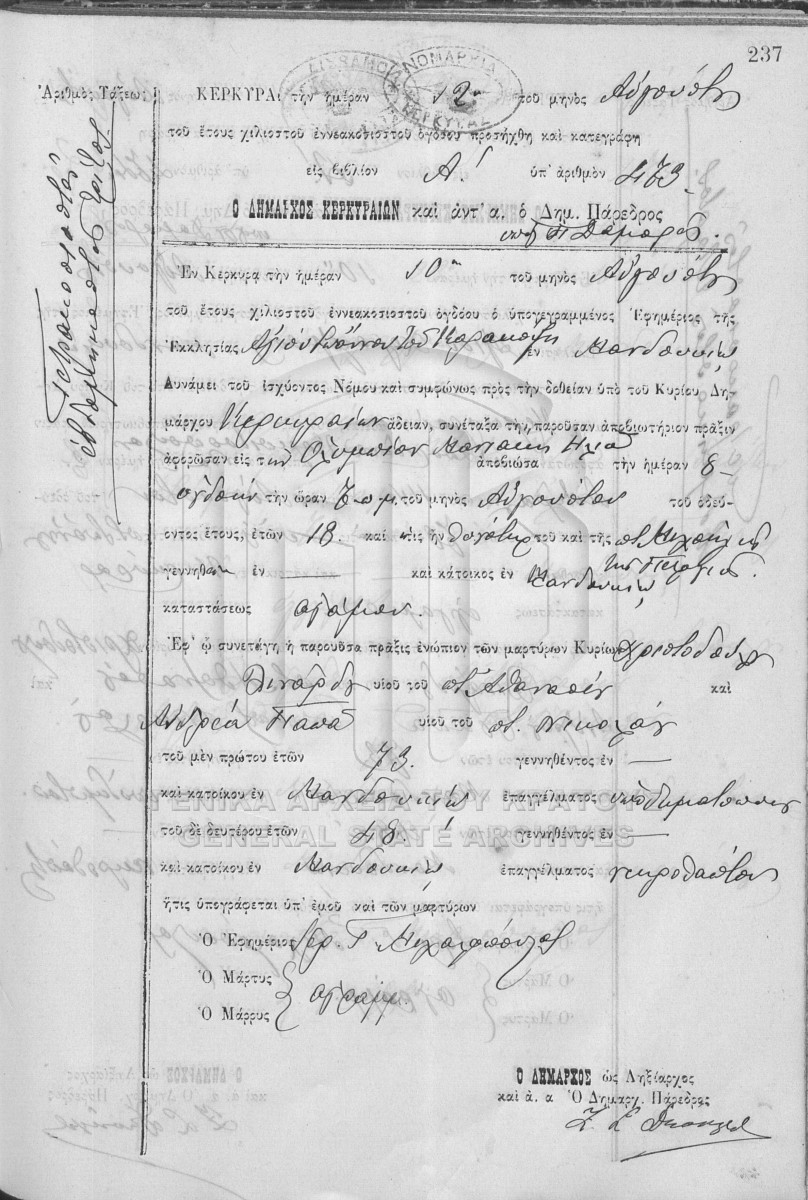 237
Ἀριθμὸς Τάξεως
Τετρακοσιοστὸς
ἑβδομηκοστὸς τρίτος
ΚΕΡΚΥΡΑι τὴν ἡμέραν 12η τοῦ μηνὸς Αὐγούστου
τοῦ ἔτους χιλιοστοῦ ἐννεακοσιοστοῦ ὀγδόου προσήχθη καὶ κατεγράφη
εἰς βιβλίον Α! ὑπ' ἀριθμὸν 473
Ο ΔΗΜΑΡΧΟΣ ΚΕΡΚΥΡΑΙΩΝ καὶ ἀντ' α. ὁ Δημ. Πάρεδρος
Ἐν Κερκυρᾳ τὴν ἡμέραν 10η τοῦ μηνὸς Αὐγούστου
τοῦ ἔτους χιλιοστοῦ ἐννεακοσιοστοῦ ὀγδόου ὁ ὑπογεγραμμένος Ἐφημέριος τῆς
Ἐκκλησίας Ἁγίου Ἰωάννου τοῦ ἐν Μανδουκίῳ
Δυνάμει τοῦ ἰσχύοντος Νόμου καὶ συμφώνως πρὸς τὴν δοθεῖσαν ὑπὸ τοῦ Κυρίου Δη-
μάρχου Κερκυραίων ἄδειαν, συνέταξα τὴν παροῦσαν ἀποβιωτήριον πρᾶξιν
ἀφορῶσαν εἰς τὴν Ὀλυμπίαν ἀποβιώσα τὴν ἡμέραν 8-
ὀγδόην τὴν ὥραν 7 π.μ. τοῦ μηνὸς Αὐγούστου τοῦ ὁδεύ-
οντος ἔτους, ἐτῶν 18. καὶ τις ἦν θυγάτηρ τοῦ καὶ τῆς
γεννηθεῖσα ἐν — καὶ κάτοικος ἐν Μανδουκίῳ
καταστάσεως ἀγάμου.
Ἐφ' ᾧ συνετάγη ἡ παροῦσα πρᾶξις ἐνώπιον τῶν μαρτύρων Κυρίων Χριστοδούλου
υἱοῦ τοῦ π. Ἀθανασίου καὶ
Ἀνδρέα Παπᾶ υἱοῦ τοῦ π. Νικολάου
τοῦ μὲν πρώτου ἐτῶν 73. γεννηθέντος ἐν —
καὶ κατοίκου ἐν Μανδουκίῳ ἐπαγγέλματος ὑποδηματοποιοῦ
τοῦ δὲ δευτέρου ἐτῶν 48. γεννηθέντος ἐν —
καὶ κατοίκου ἐν Μανδουκίῳ ἐπαγγέλματος νεκροθάπτου
ἥτις ὑπογράφεται ὑπ' ἐμοῦ καὶ τῶν μαρτύρων
Ὁ Ἐφημέριος Ἱερ. Γ.
Ὁ Μάρτυς
Ὁ Μάρρυς
ἀγράμμ.
Ο ΔΗΜΑΡΧΟΣ ὡς Ληξίαρχος
καὶ ἀ. α Ὁ Δημαρχ. Πάρεδρος
ΓΕΝΙΚΑ ΑΡΧΕΙΑ ΤΟΥ ΚΡΑΤΟΥΣ
GENERAL STATE ARCHIVES